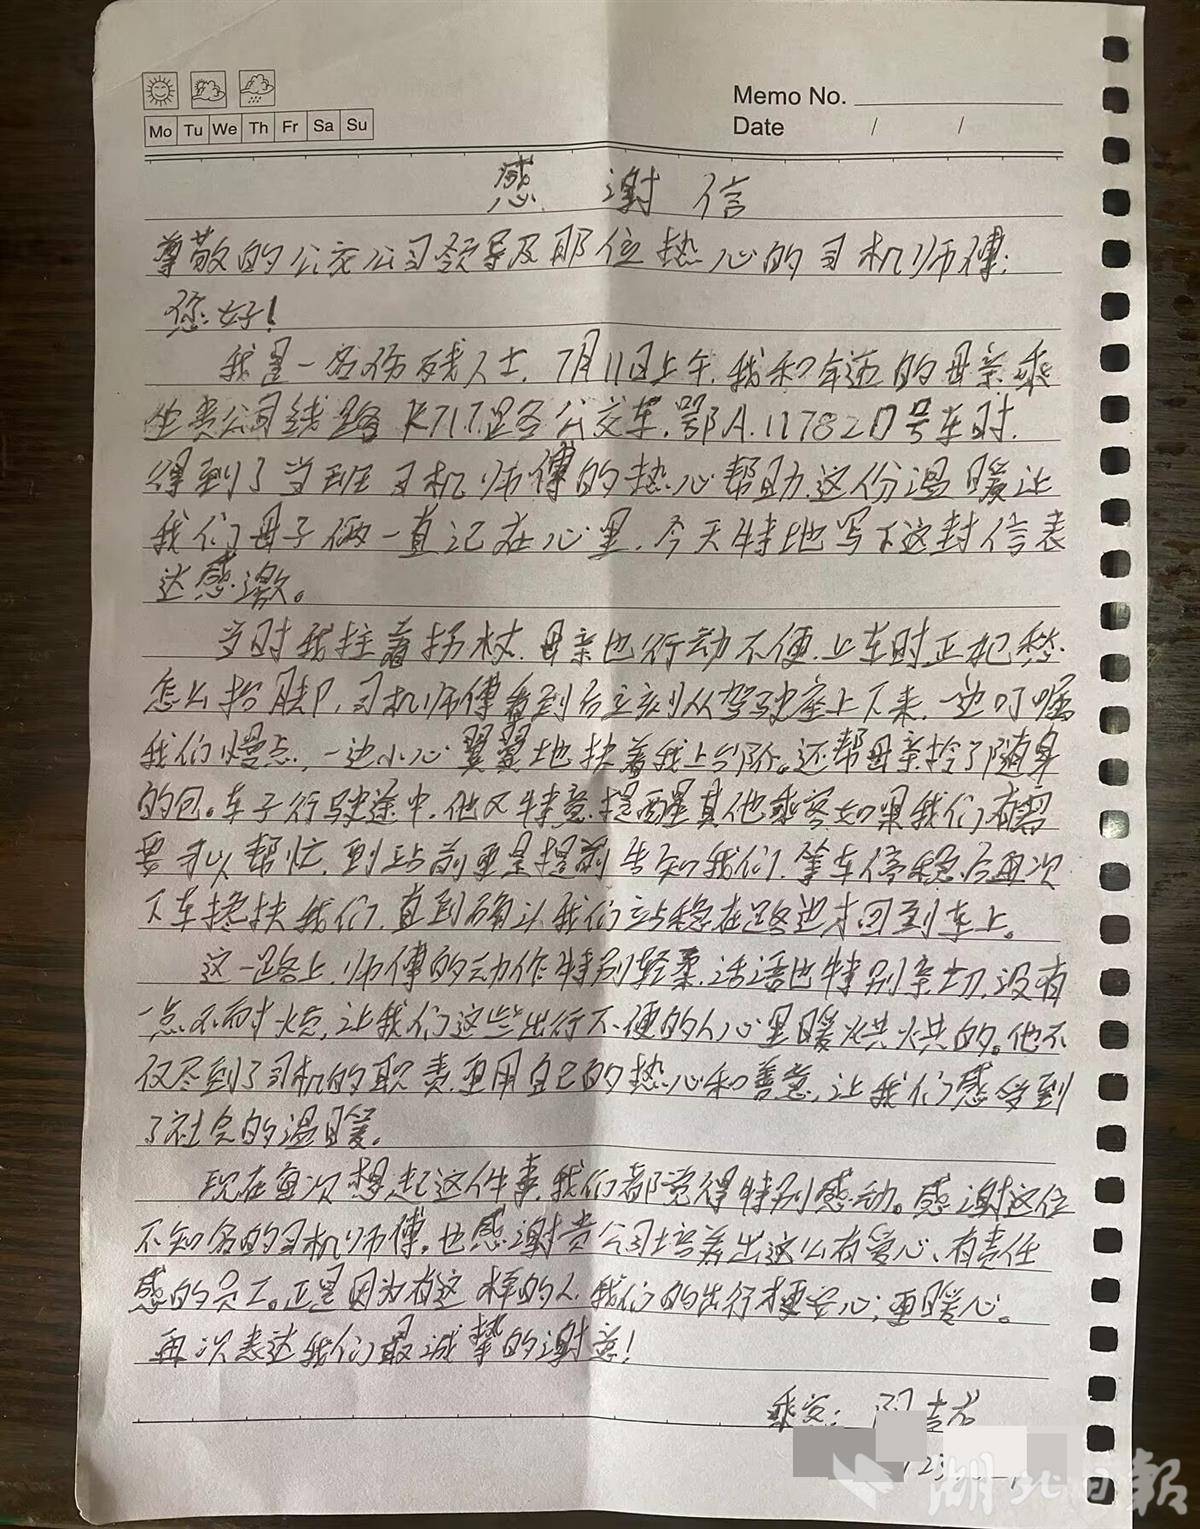 Mo Tu We Th Fr Sa Su
Memo No.
Date / /
感谢信
尊敬的公交公司领导及那位热心的司机师傅:
您好!
我是一名伤残人士,7月11日上午,我和年迈的母亲乘
坐贵公司线路K717路公交车,鄂A.11782D号车时,
得到了当班司机师傅的热心帮助,这份温暖让
我们母子俩一直记在心里,今天特地写下这封信表
达感激。
当时我拄着拐杖,母亲也行动不便,上车时正犯愁
怎么抬脚,司机师傅看到后立刻从驾驶座上下来,一边叮嘱
我们慢点,一边小心翼翼地扶着我上台阶。还帮母亲拎了随身
的包。车子行驶途中,他又特意提醒其他乘客如果我们有需
要可以帮忙,到站前更是提前告知我们,等车停稳后再次
下车搀扶我们,直到确认我们站稳在路边才回到车上。
这一路上,师傅的动作特别轻柔,话语也特别亲切,没有
一点不耐烦,让我们这些出行不便的人心里暖烘烘的。他不
仅尽到了司机的职责,更用自己的热心和善意,让我们感受到
了社会的温暖。
现在每次想起这件事,我们都觉得特别感动。感谢这位
不知名的司机师傅。也感谢贵公司培养出这么有爱心、有责任
感的员工。正是因为有这样的人,我们的出行才更安心,更暖心。
再次表达我们最诚挚的谢意!
乘客:
湖北日报